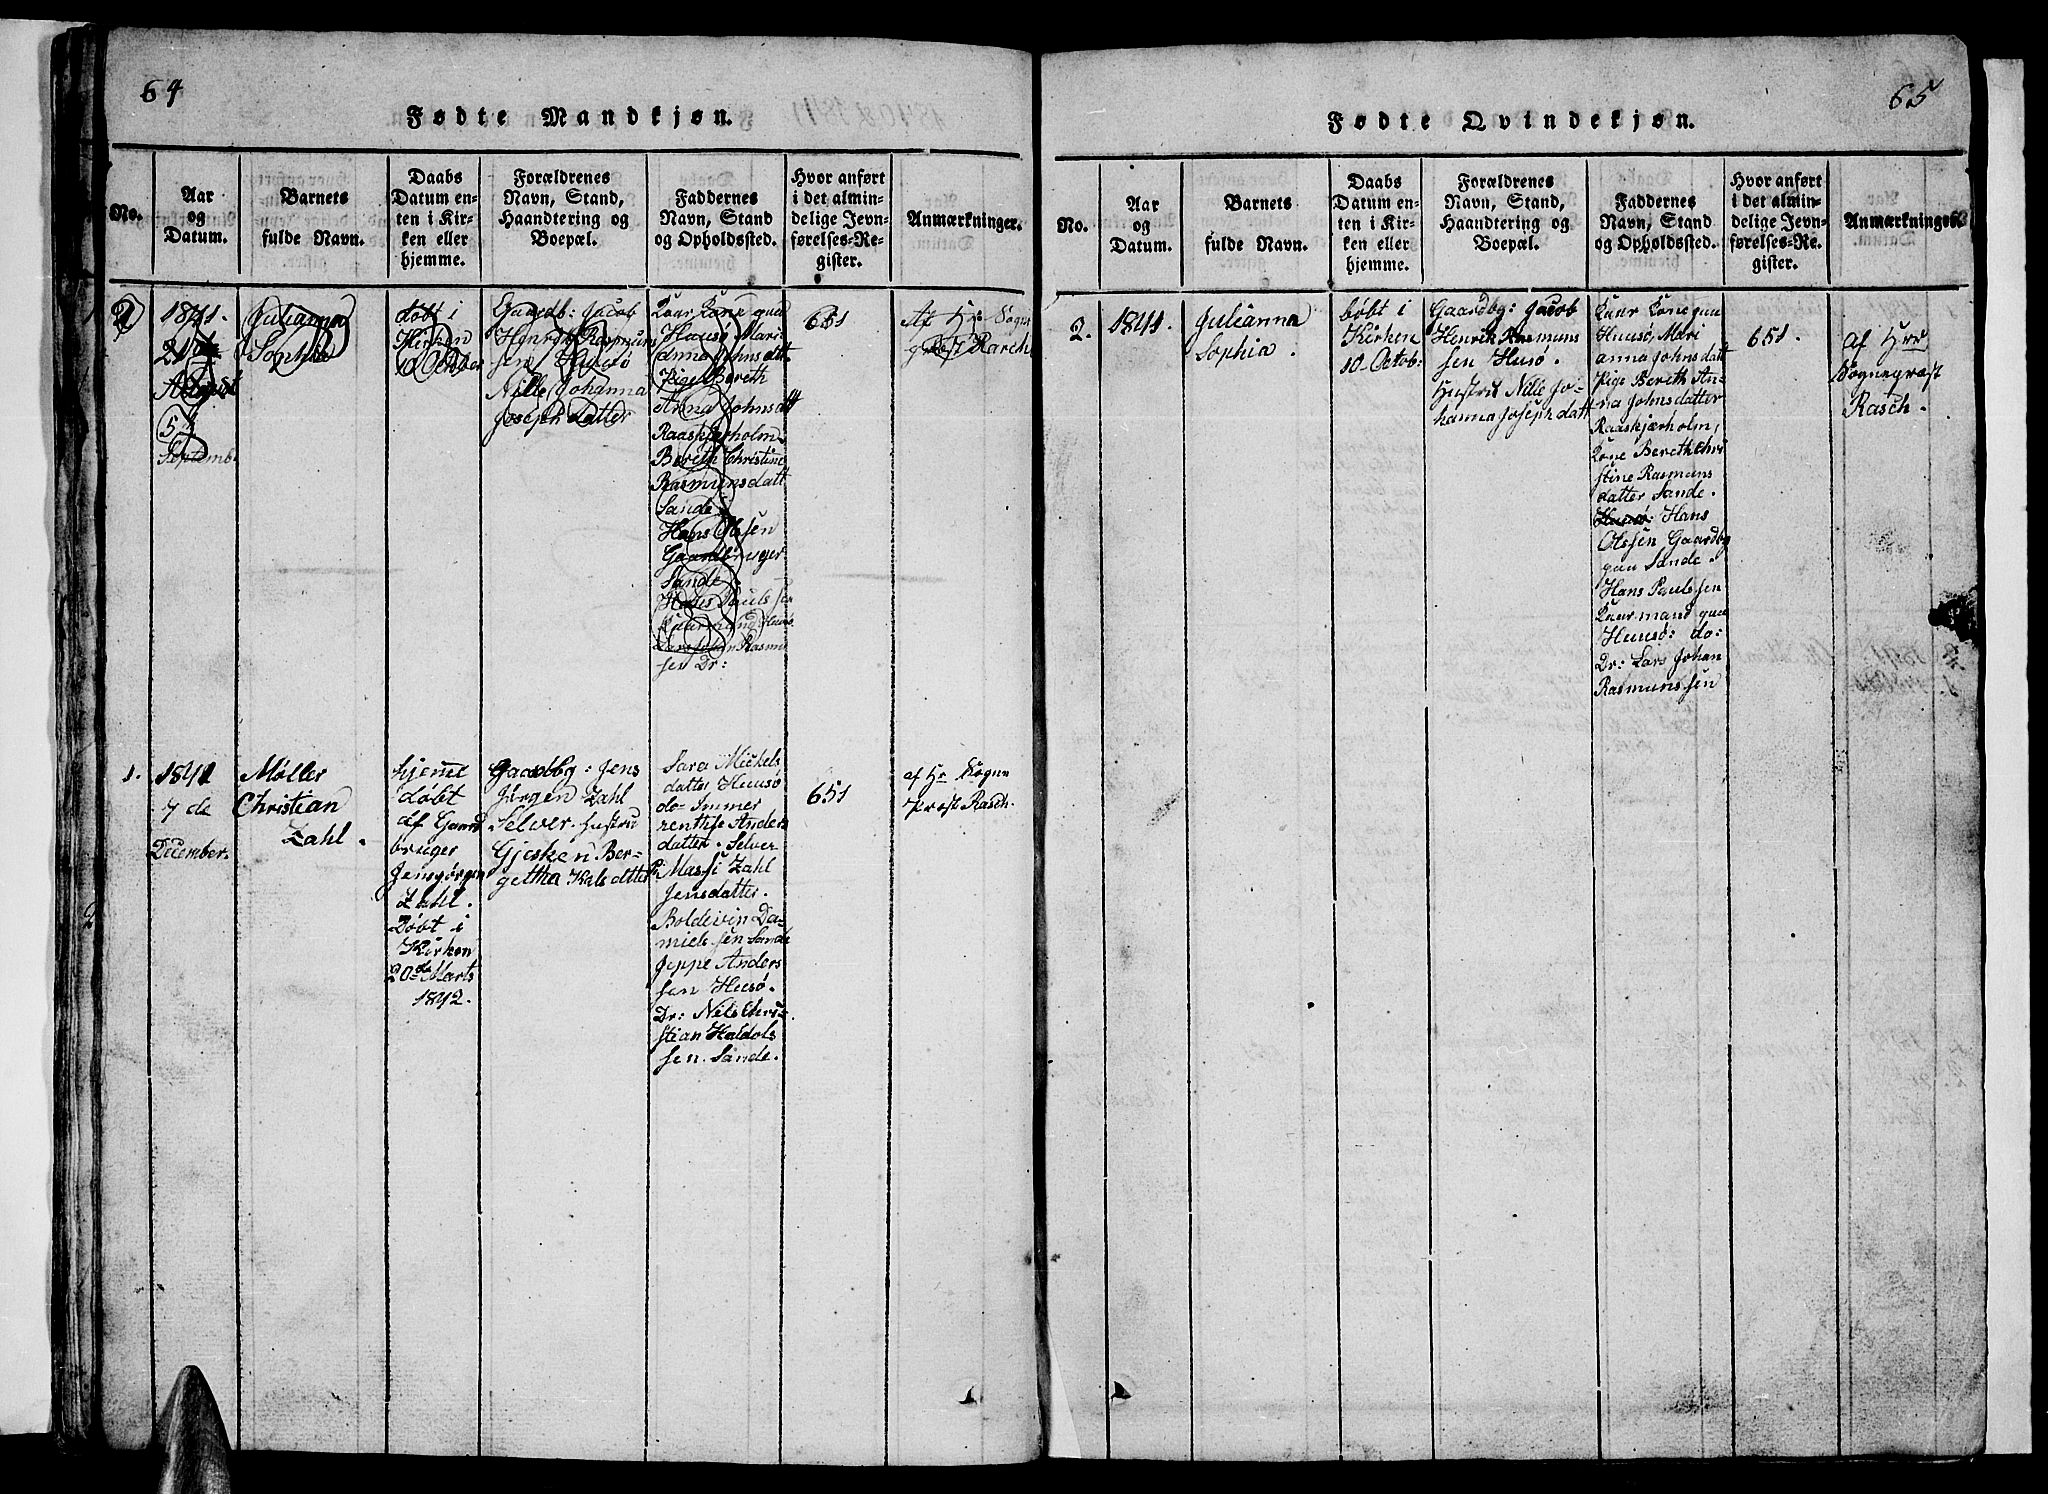 64
Fødte Mandkjøn.
No.
Aar
og
Datum.
Barnets
fulde Navn.
Daabs
Datum en-
ten i Kir-
ken eller
hjemme.
Forældrenes
Navn, Stand,
Haandtering og
Boepæl.
Faddernes
Navn, Stand
og Opholdssted.
Hvor anført
i det almin-
delige Jevn-
førelses-Re-
gister.
Anmærkninger.
2
1841.
21
August
5
Septemb
Julianna
Sophia
døbt i
Kirken
10 October
Gaardb: Jacob
Henrik Rasmun
sen Huusø
Nille Johanna
Joseph datter
Kaar Kone paa
Huusø Mari
anna Johnsdatt
Pige Bereth
Anna Johnsdatt
Raaskjærholm
Bereth Christine
Rasmunsdatt
Sande
Hans Olssen
Gaardbruger
Sande.
Hans Pauls sen
Kaarmand Huusø
Lars Johan Rasmu
sen Dr:
651
Af Hr Sogne
prost Rasch
1.
1841
7 de
December.
Møller
Christian
Zahl.
hjeme
døbt
af Gaard
bruger
Jensjørgen
Zahl.
Døbt i
Kirken
20de Marts
1842.
Gaardbg: Jens
Jørgen Zahl
Selver. Hustru
Gjesken Ber-
getha Kalsdatter
Sara Mickels
datter Huusø
do- Immer
renthse Anders
datter. Selver
Pi Massi Zahl
Jensdatter.
Boldevin Da-
niels sen Sande
Jeppe Anders
sen Huusø.
Dr: Nils Chri-
stian Haldols
sen. Sande.
651
af Hr Sogne
Prost Rasch.
65
Fødte Qvindekjøn.
No.
Aar
og
Datum.
Barnets
fulde Navn.
Daabs
Datum en-
ten i Kir-
ken eller
hjemme.
Forældrenes
Navn, Stand,
Haandtering og
Boepæl.
Faddernes
Navn, Stand
og Opholdssted.
Hvor anført
i det almin-
delige Jevn-
førelses-Re-
gister.
Anmærkninger.
2.
1841.
Julianna
Sophia.
døbt i
Kirken
10- Octob:
Gaardbg: Jacob
Henrik Rasmuns
sen Husø.
Hustru Nille Jo-
hanna Joseph datt
Kaar Kone paa
Huusø, Mari
anna Johnsdatt
Pige Bereth An-
na Johnsdatter
Raaskjærholm,
Kone Bereth Chri
stine Rasmuns
datter Sande.
Huusø: Hans
Olssen Gaardbg
paa Sande.
Hans Pauls sen
Kaarmand paa
Huusø: do-
Dr: Lars Johan
Rasmuns sen
651.
af Hrr
Sogneprost
Rasch.